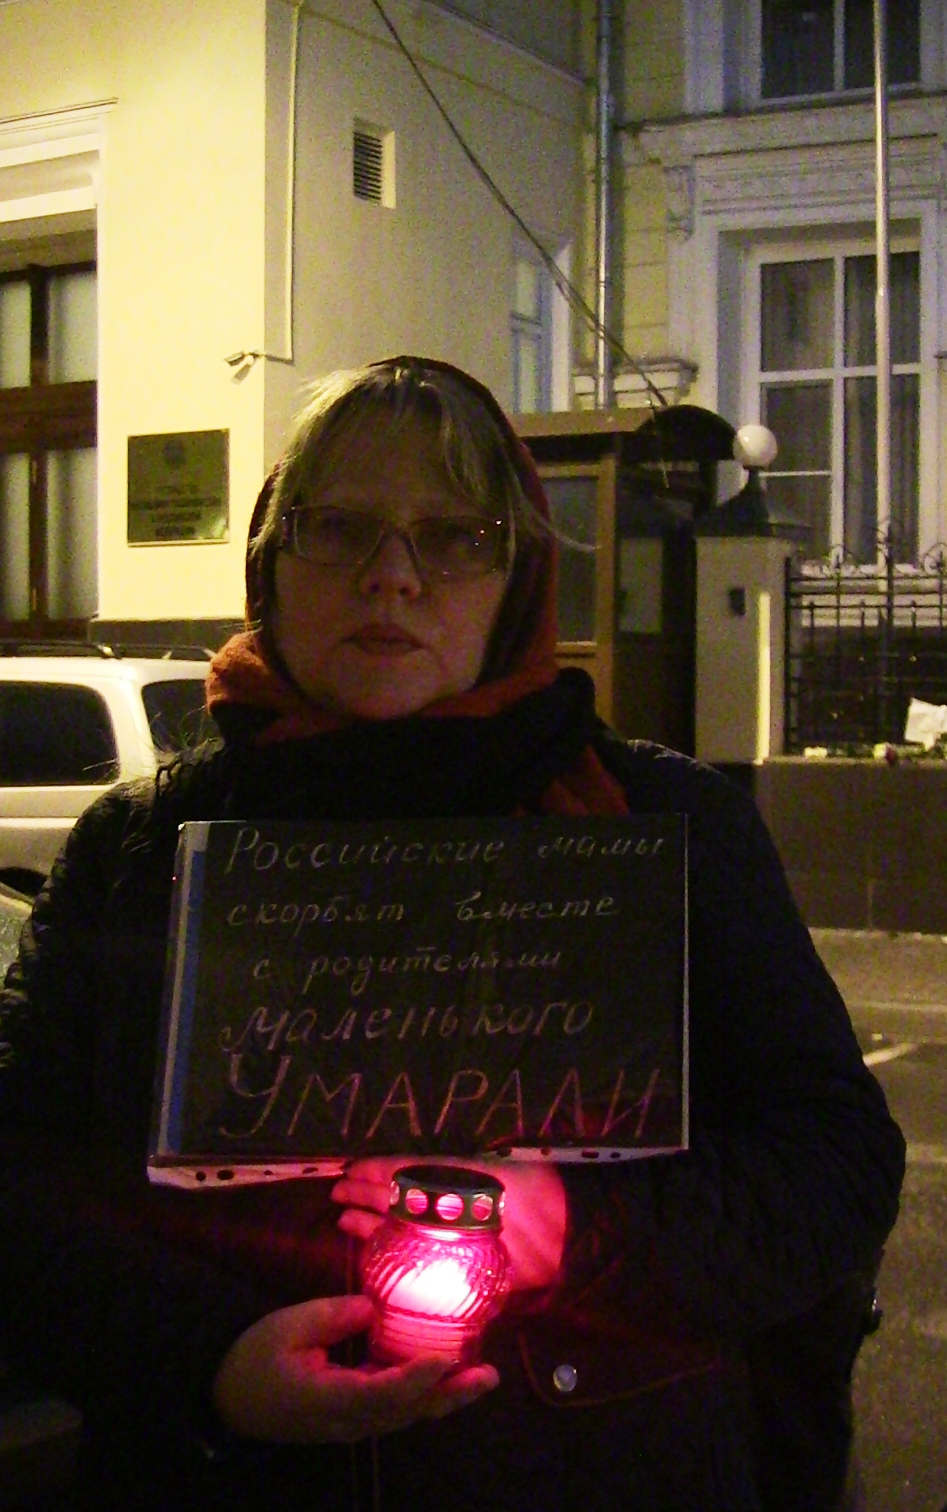 Российские мамы
скорбят вместе
с родителями
маленького
УМАРАЛИ